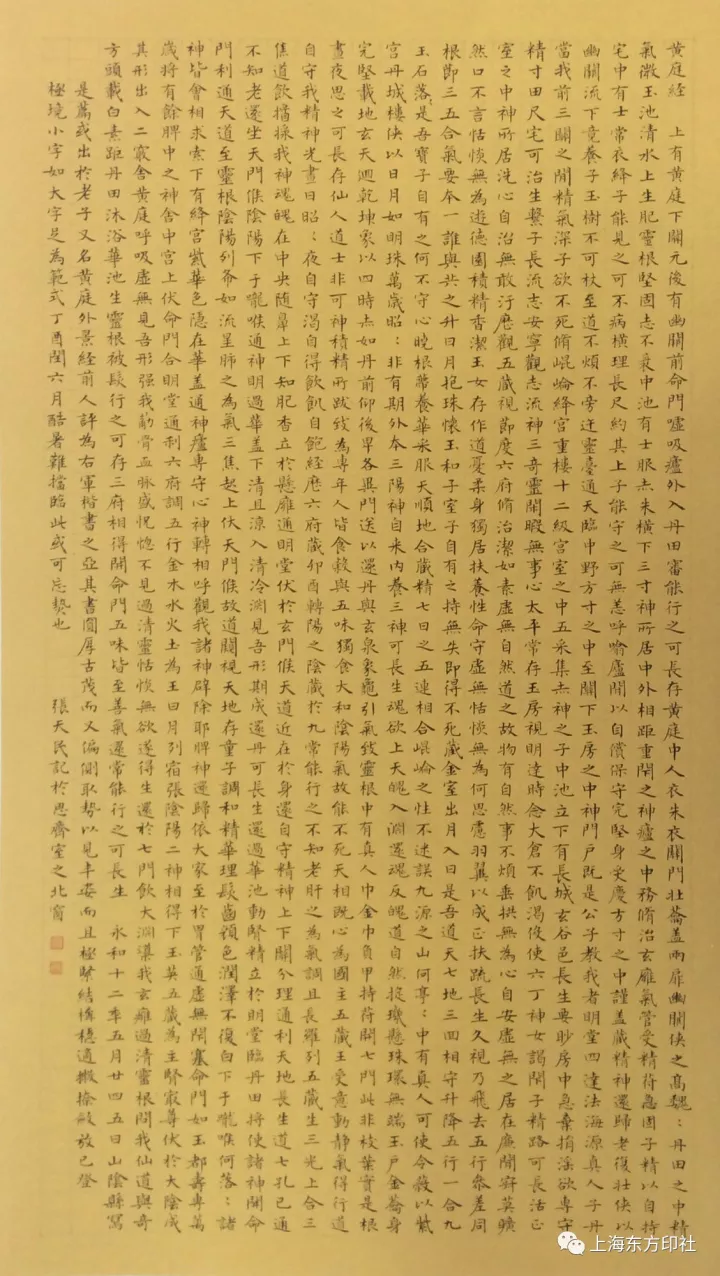 黄庭經 上有黄庭下關元後有幽關前命門噓吸廬外入丹田審能行之可長存黄庭中人衣朱衣關門壯蘥蓋兩扉幽關俠之高魏:丹田之中精
氣微玉池清水上生肥靈根堅固志不衰中池有士服赤朱横下三寸神所居中外相距重閇之神廬之中務脩治玄廱氣管受精苻急固子精以自持
宅中有士常衣絳子能見之可不病横理長尺約其上子能守之可無恙呼噏廬閒以自償保守完堅身受慶方寸之中謹盖藏精神還歸老復壯俠以
幽關流下竟養子玉樹不可杖至道不煩不旁迕靈臺通天臨中野方寸之中至關下玉房之中神門户既是公子教我者明堂四達法海源真人子丹
當我前三關之閒精氣深子欲不死脩崐崘絳宫重樓十二級宫室之中五采集赤神之子中池立下有長城玄谷邑長生要眇房中急棄捐淫欲專守
精寸田尺宅可治生繫子長流志安寧觀志流神三奇靈閒暇無事心太平常存玉房視明達時念大倉不飢渴役使六丁神女謁閇子精路可長活正
室之中神所居洗心自治無敢汙歷觀五藏視節度六府脩治潔如素虚無自然道之故物有自然事不煩垂拱無為心自安虚無之居在廉閒寂莫曠
然口不言恬惔無為遊德園積精香潔玉女存作道憂柔身獨居扶養性命守虚無恬惔無為何思慮羽翼以成正扶疏長生久視乃飛去五行參差同
根節三五合氣要本一誰與共之升日月抱珠懷玉和子室子自有之持無失即得不死藏金室出月入日是吾道天七地三四相守升降五行一合九
玉石落:是吾寶子自有之何不守心曉根蔕養華采服天順地合藏精七日之五連相合崐崘之性不迷誤九源之山何亭:中有真人可使令蔽以紫
宫丹城樓俠以日月如明珠萬歲昭:非有期外本三陽神自来内養三神可長生魂欲上天魄入淵還魂反魄道自然㨁璣懸珠環無端玉户金蘥身
完堅載地玄天迴乾坤象以四時赤如丹前仰後卑各異門送以還丹與玄泉象龜引氣致靈根中有真人巾金巾負甲持苻開七門此非枝葉實是根
晝夜思之可長存仙人道士非可神積精所致為專年人皆食穀與五味獨食大和陰陽氣故能不死天相既心為國主五藏王受意動静氣得行道
自守我精神光晝日昭:夜自守渴自得飲飢自飽經歷六府藏卯酉轉陽之陰藏於九常能行之不知老肝之為氣調且長羅列五藏生三光上合三
焦道飲䀌我神魂魄在中央随鼻上下知肥香立於懸廱通明堂伏於玄門候天道近在於身還自守精神上下關分理通利天地長生道七孔已通
不知老還坐天門候陰陽下于嚨喉通神明過華盖下清且涼入清冷淵見吾形期成還丹可長生還過華池動腎精立於明堂臨丹田將使諸神開命
門利通天道至靈根陰陽列布如流星肺之為氣三焦起上伏天門候故道闚視天地存童子調和精華理髮齒顔色潤澤不復白下于嚨喉何落:諸
神皆會相求索下有絳宫紫華色隱在華盖通神廬專守心神轉相呼觀我諸神辟除耶脾神還歸依大家至於胃管通虚無閇塞命門如玉都壽專萬
歲將有餘脾中之神舍中宫上伏命門合明堂通利六府調五行金木水火土為王日月列宿張陰陽二神相得下玉英五藏為主腎寂尊伏於大陰成
其形出入二竅舍黄庭呼吸虚無見吾形强我筋骨血脉盛怳惚不見過清靈恬惔無欲遂得生還於七門飲大淵導我玄廱過清靈根問我仙道與奇
方頭載白素距丹田沐浴華池生靈根被髮行之可存三府相得開命門五味皆至善氣還常能行之可長生 永和十二年五月廿四五日山陰縣寫
是篇或出於老子又名黄庭外景経前人評為右軍楷書之亞其書圓厚古茂而又偏側取勢以見丰姿而且極緊結構穩適撇捺敢放已登
極境小字如大字足為範式丁酉閏六月酷暑難擋臨此或可忘熱也 張天民記於思齋室之北窗
上海东方印社